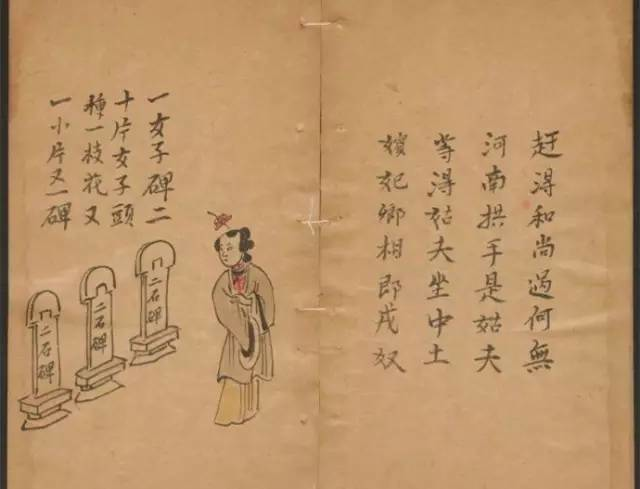 赶淂和尚過何無
河南拱手是姑夫
等淂姑夫坐中土
妃卿相即戌奴
一女子碑二
十片女子頭
種一枝花又
一小片又一碑
二石碑
二石碑
二石碑